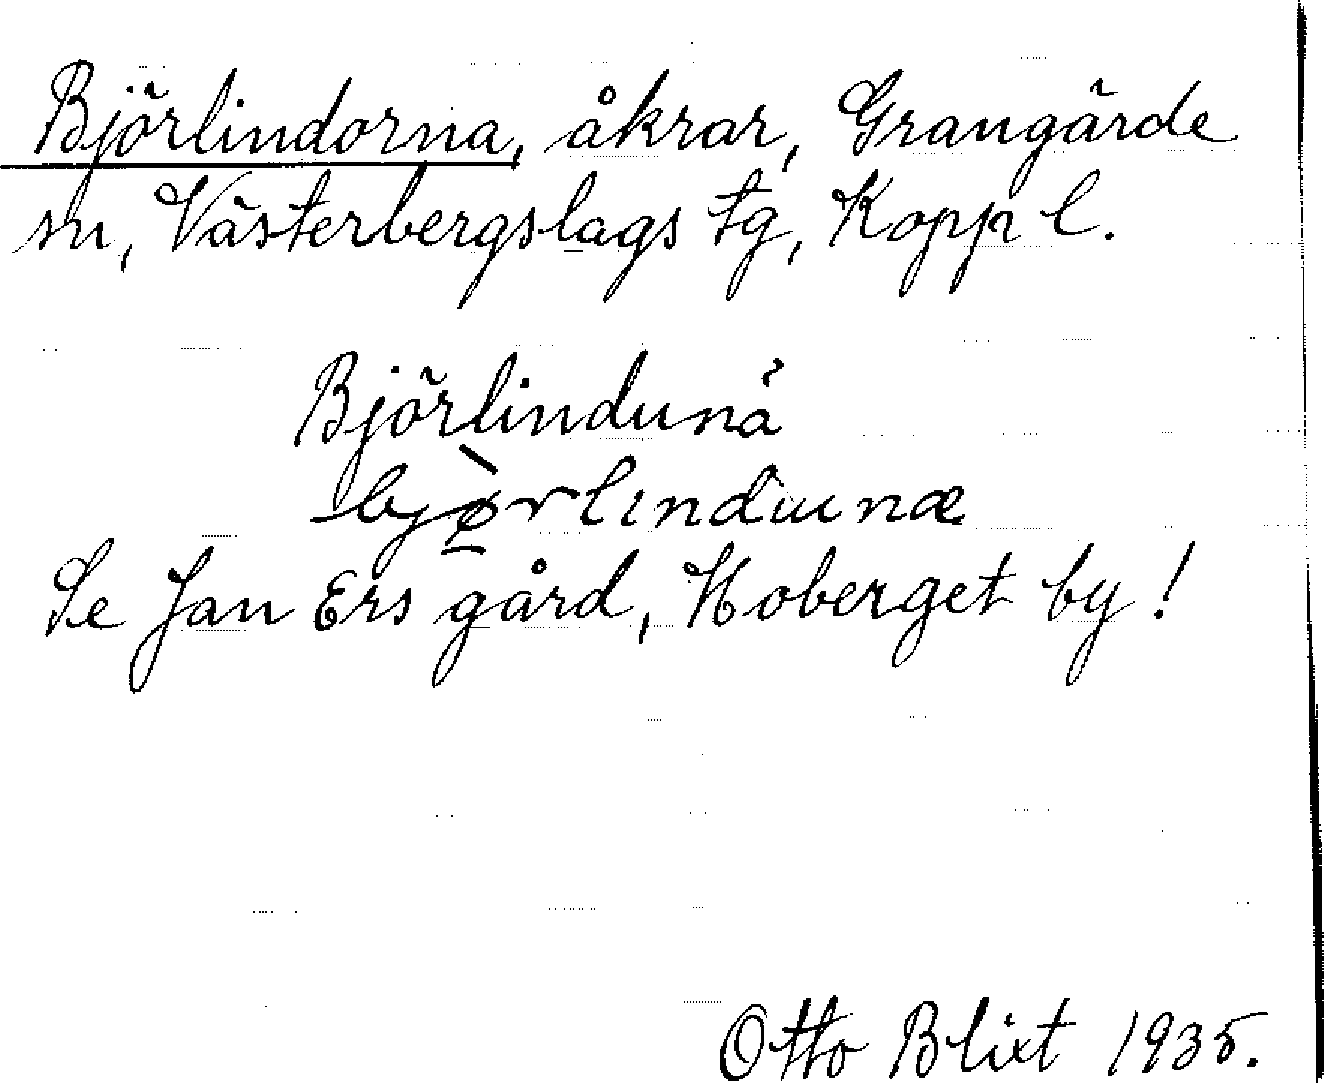 Björlindorna, åkrar, Grangärde
sn, Västerbergslags tg, Kopp l.
Björlindunä
bjørlindɯnæ
Se Jan Ers gård, Hoberget by!
Otto Blixt 1935.